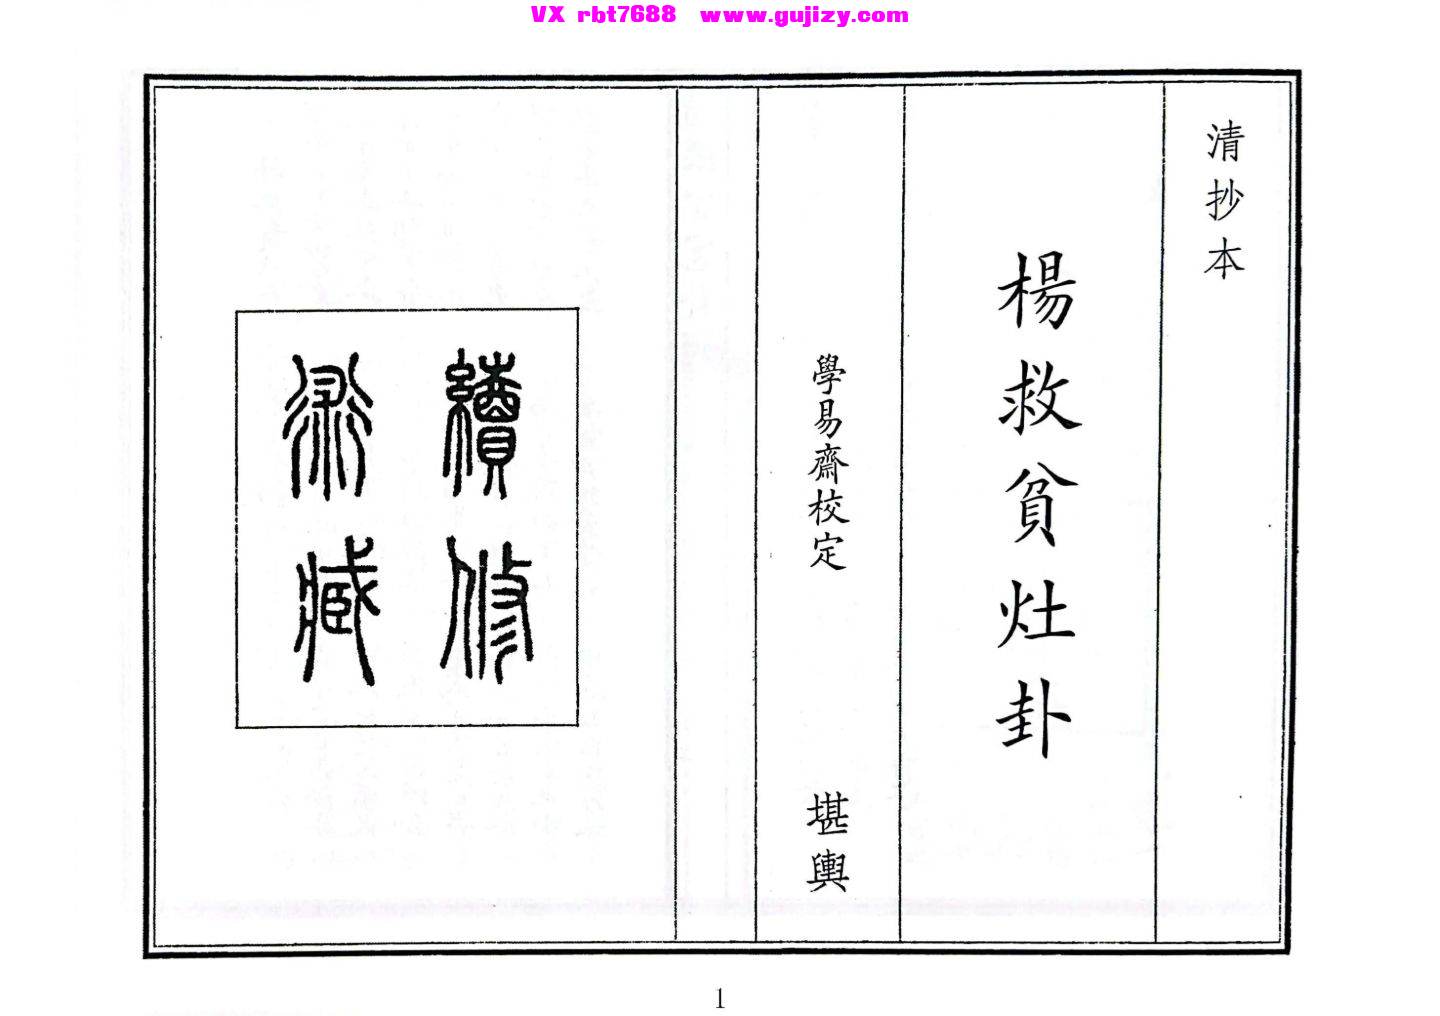 VX rbt7688 www.gujizy.com
清抄本
楊救貧灶卦
學易齋校定 堪輿
續修
術藏
1